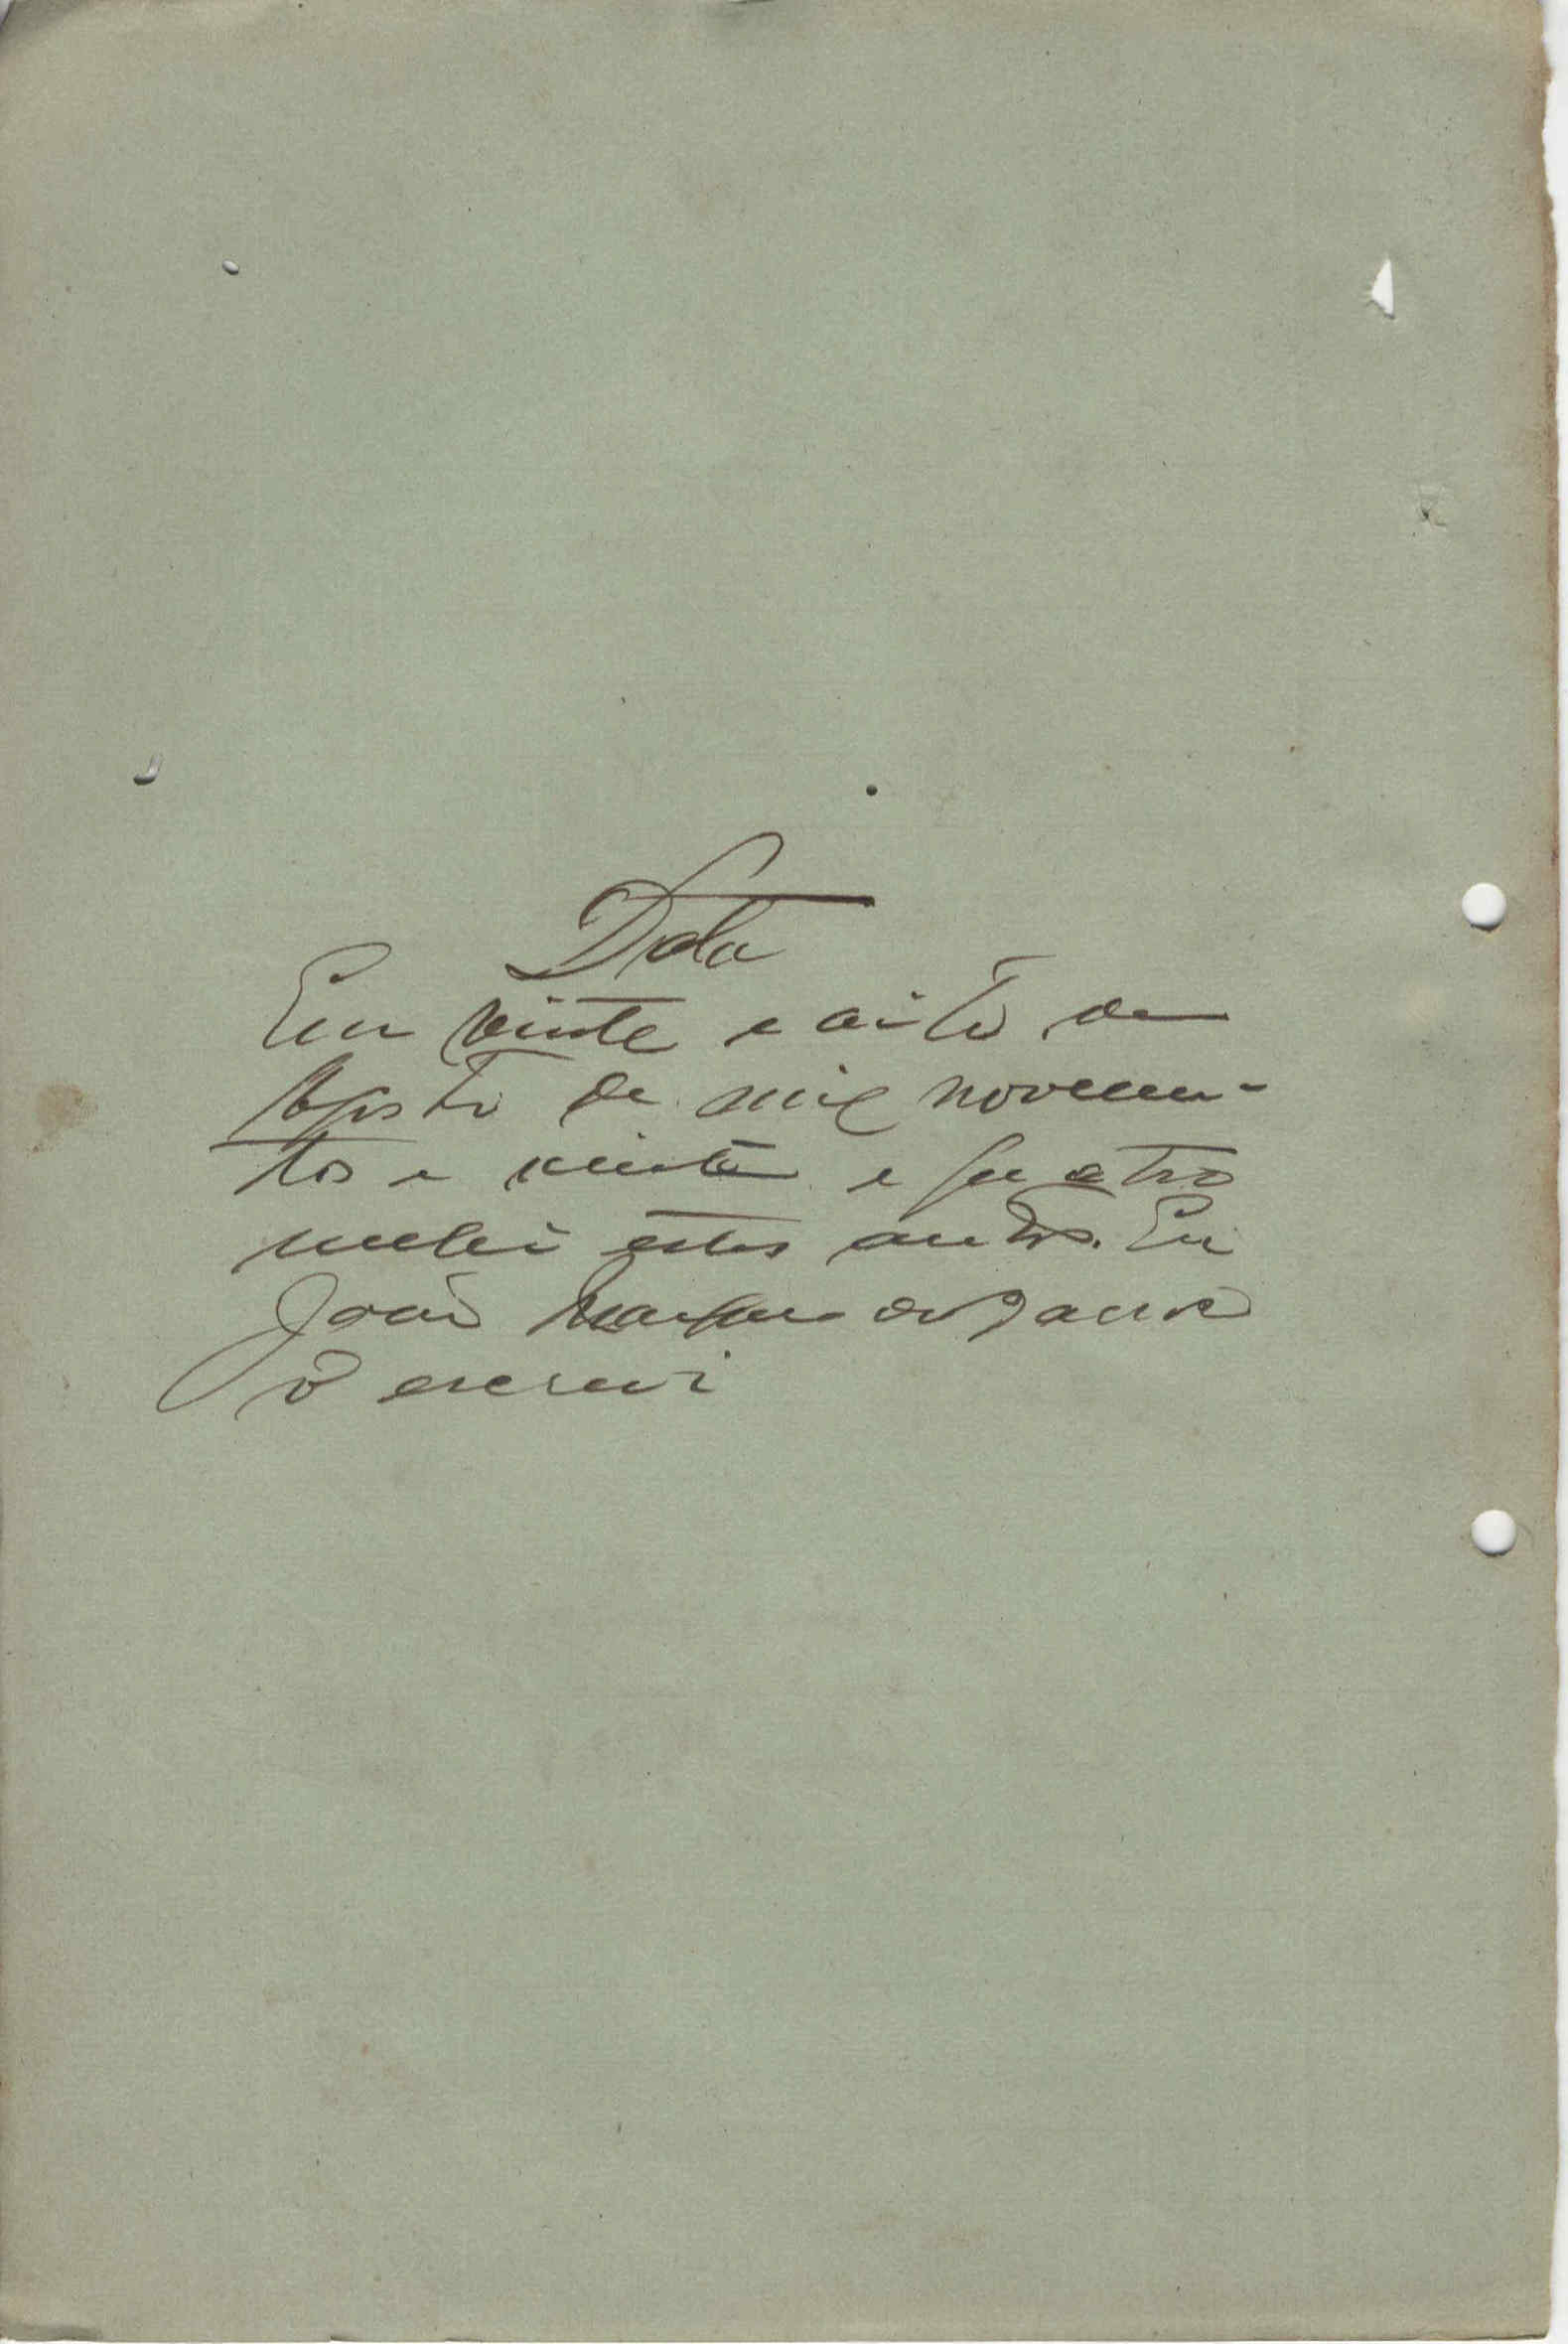 Data
Em vinte e oito de
Agosto de mil novecen-
tos e vinte e quatro
recebi estes autos. Eu
João
o escrevi